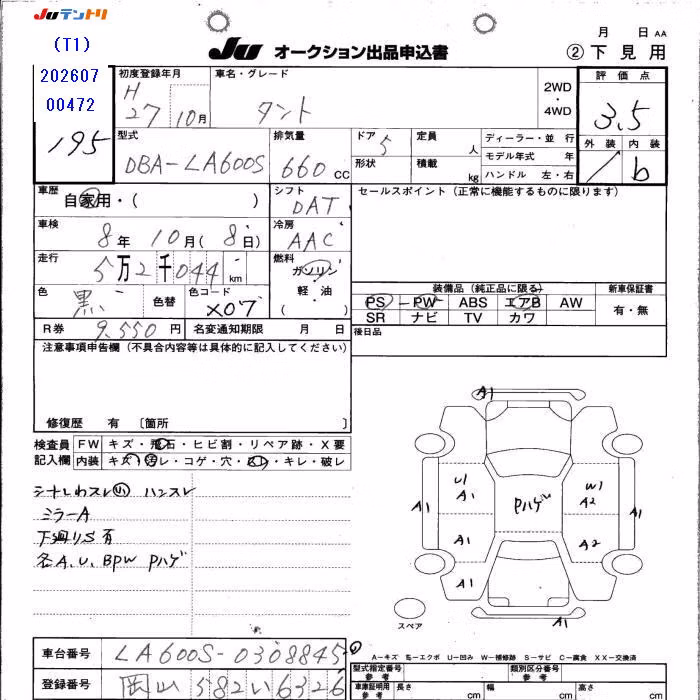 Juテントリ
(T1)
202607
00472
195
Ju オークション出品申込書
月 日 AA
② 下見用
初度登録年月
H
27 10月
車名・グレード
タント
2WD
・
4WD
評価点
3.5
外装 内装
b
型式
DBA-LA600S
排気量
660 cc
ドア 5
形状
定員 人
積載 kg
ディーラー・並行
モデル年式 年
ハンドル 左・右
車歴
自家用・( )
シフト
DAT
セールスポイント(正常に機能するものに限ります)
車検
8年 10月( 8日)
冷房
AAC
走行
5万2千044 km
燃料
ガソリン
軽・油
( )
色
黒
色替
色コード
X07
装備品(純正品に限る)
新車保証書
PS PW ABS エアB AW
SR ナビ TV カワ
有・無
R券 9,550円
名変通知期限 月 日
後日品
注意事項申告欄(不具合内容等は具体的に記入してください)
修復歴 有 〔箇所 〕
検査員
記入欄
FW キズ・飛石・ヒビ割・リペア跡・X要
内装 キズ・汚レ・コゲ・穴・・キレ・破レ
ハンスレ
ミラーA
下廻りS 有
各A、U、BPW Pハゲ
A1
U1
A1
W1
A2
A1
Pハゲ
A1
A1
A2
A1
A1
スペア
車台番号 LA600S-0308845
登録番号 岡山 582 い 6326
A-キズ E-エクボ U-凹み W-補修跡 S-サビ C-腐食 XX-交換済
型式指定番号
参考
類別区分番号
参考
車庫証明用
参考
長さ cm
幅 cm
高さ cm